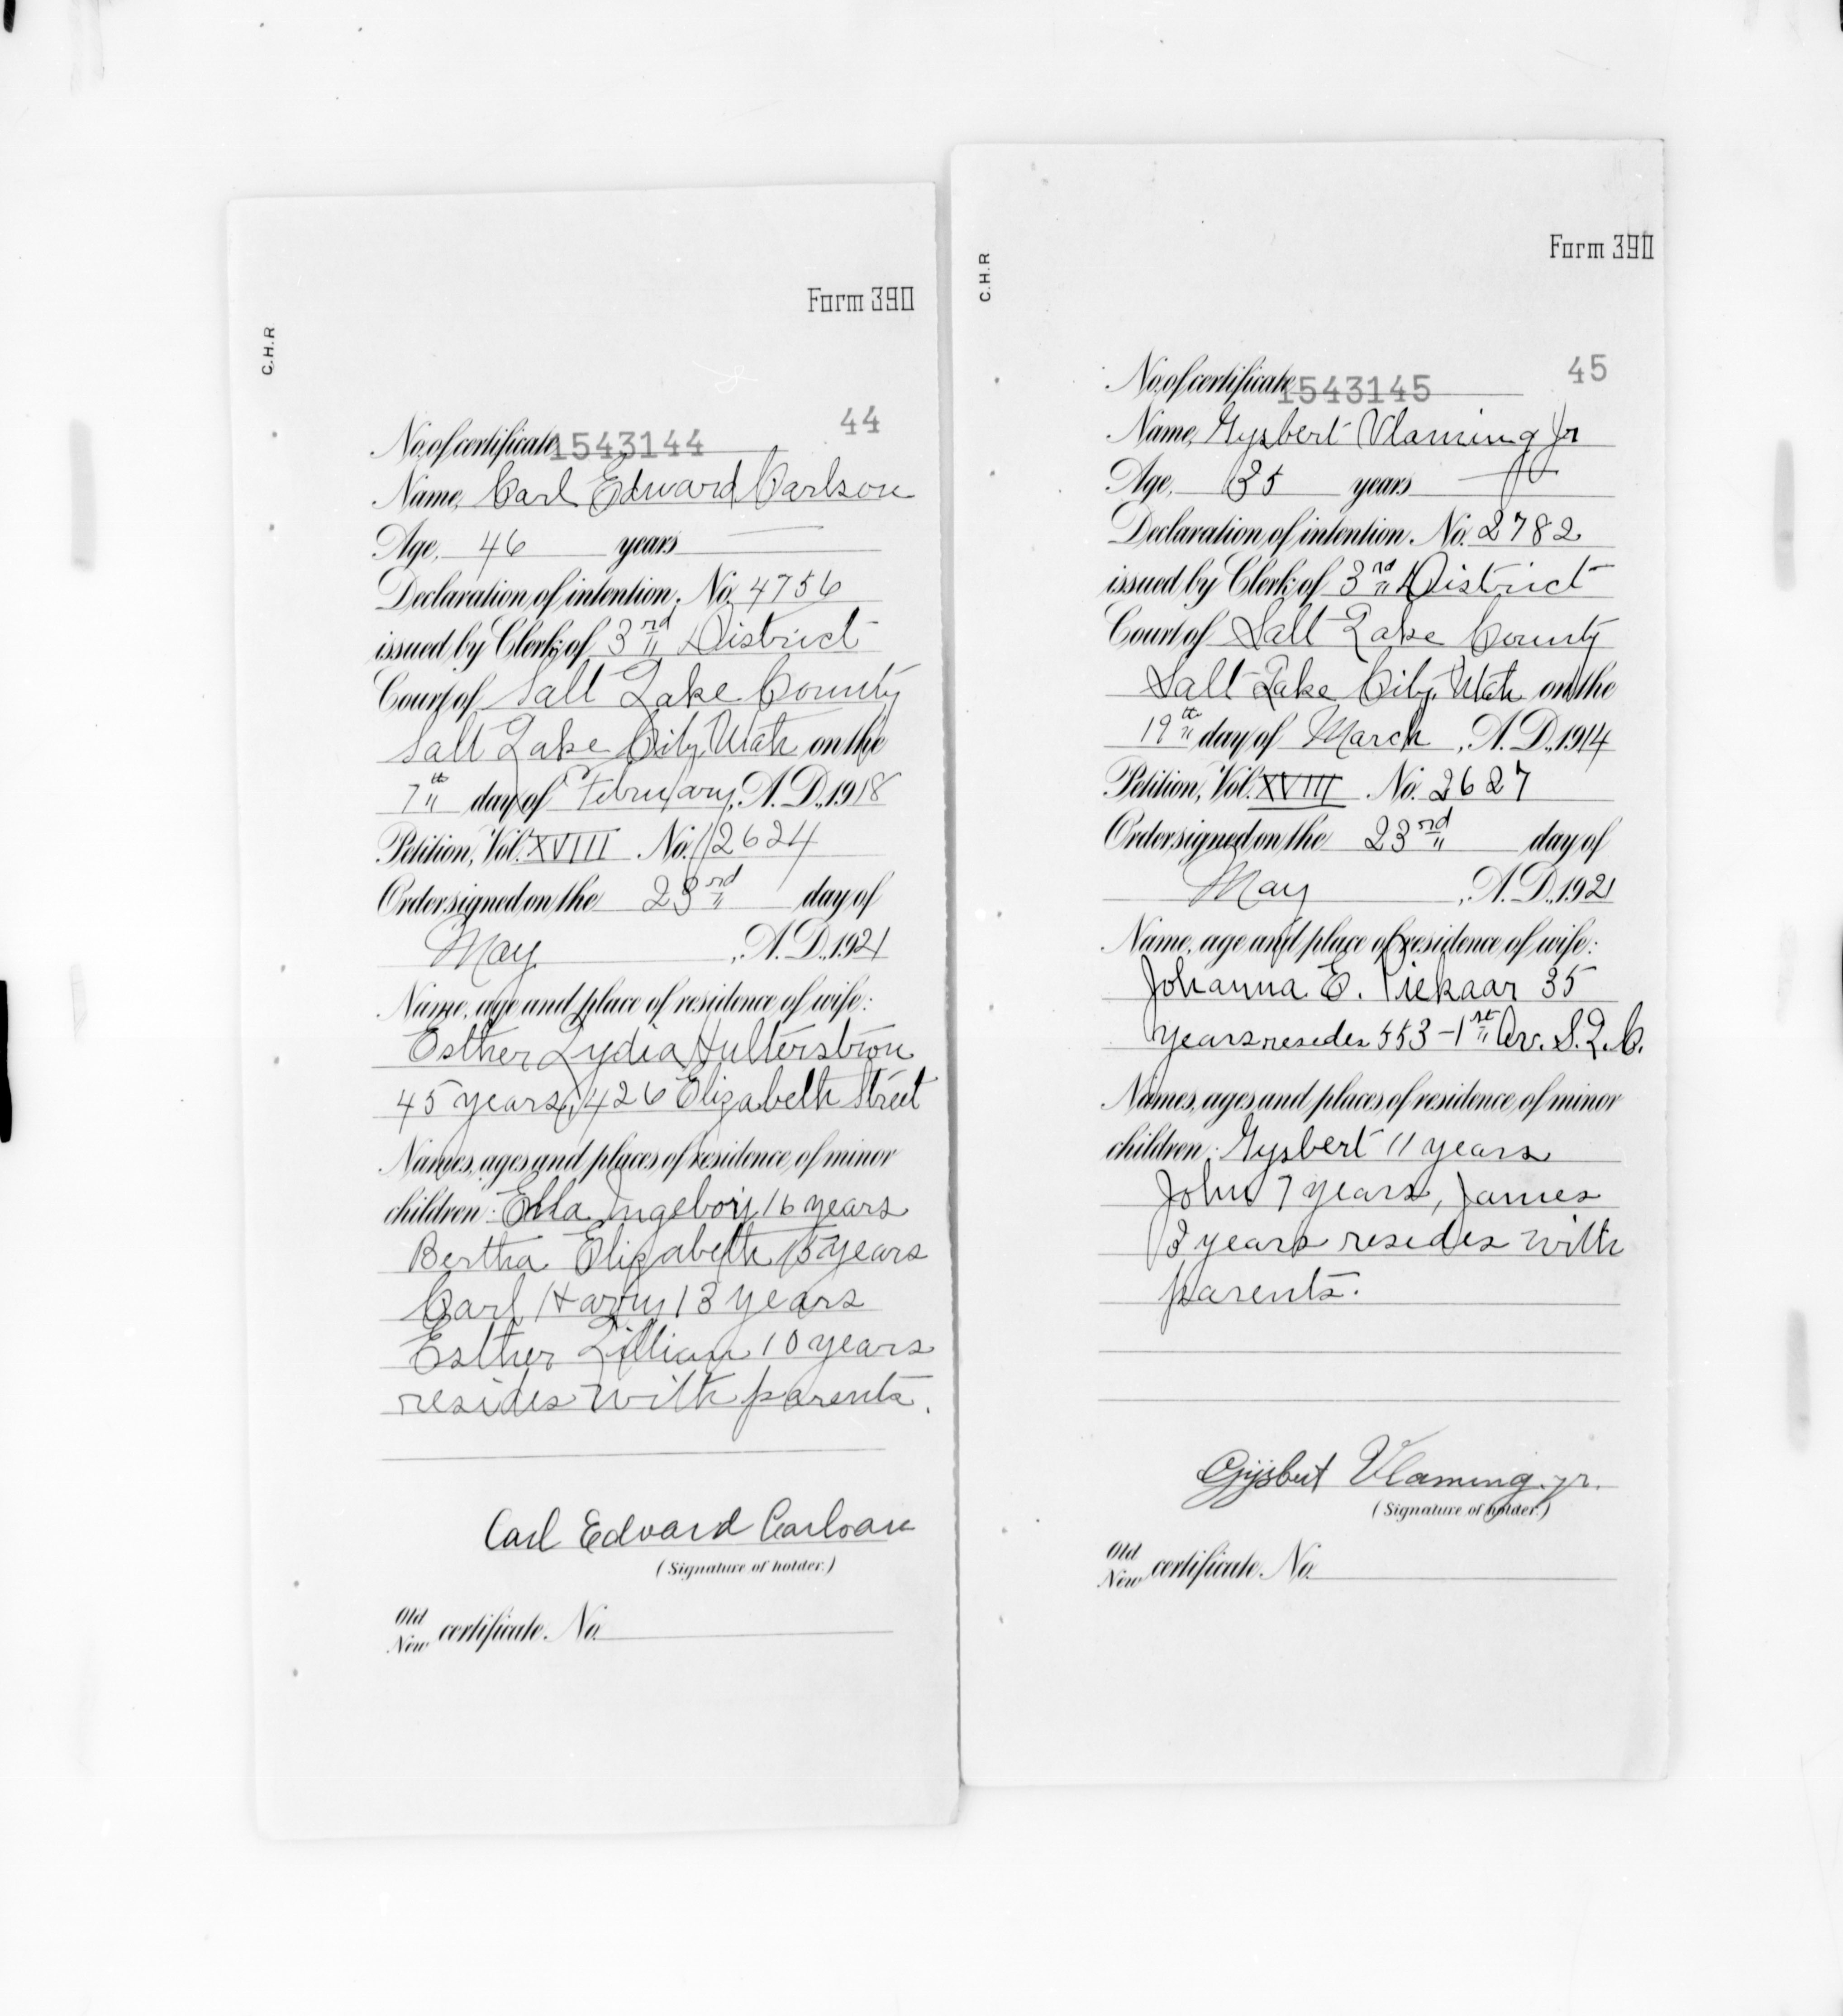 Form 390
C.H.R
44
No. of certificate 1543144
Name, Carl Edward Carlson
Age, 46 years
Declaration of intention, No. 4756
issued by Clerk of 3rd District
Court of Salt Lake County
Salt Lake City, Utah on the
7th day of February, A. D., 1918
Petition, Vol. XVIII No. 2624
Order signed on the 23rd day of
May, A. D., 1921
Name, age and place of residence of wife:
Esther Lydia Hulterstrom
45 years, 426 Elizabeth Street
Names, ages and places of residence of minor
children: Ella Ingeborg 16 years
Bertha Elizabeth 15 years
Carl Harry 13 years
Esther Lillian 10 years
resides with parents.
Carl Edvard Carlson
(Signature of holder.)
Old
New certificate, No.
Form 390
C.H.R
45
No. of certificate 1543145
Name, Gysbert Vlaming Jr
Age, 35 years
Declaration of intention, No. 2782
issued by Clerk of 3rd District
Court of Salt Lake County
Salt Lake City, Utah on the
19th day of March, A. D., 1914
Petition, Vol. XVIII No. 2627
Order signed on the 23rd day of
May, A. D., 1921
Name, age and place of residence of wife:
Johanna E. Piekaar 35
years resides 553-1st Av. S.L.C.
Names, ages and places of residence of minor
children: Gysbert 11 years
John 7 years, James
3 years resides with
parents.
Gijsbert Vlaming jr.
(Signature of holder.)
Old
New certificate, No.